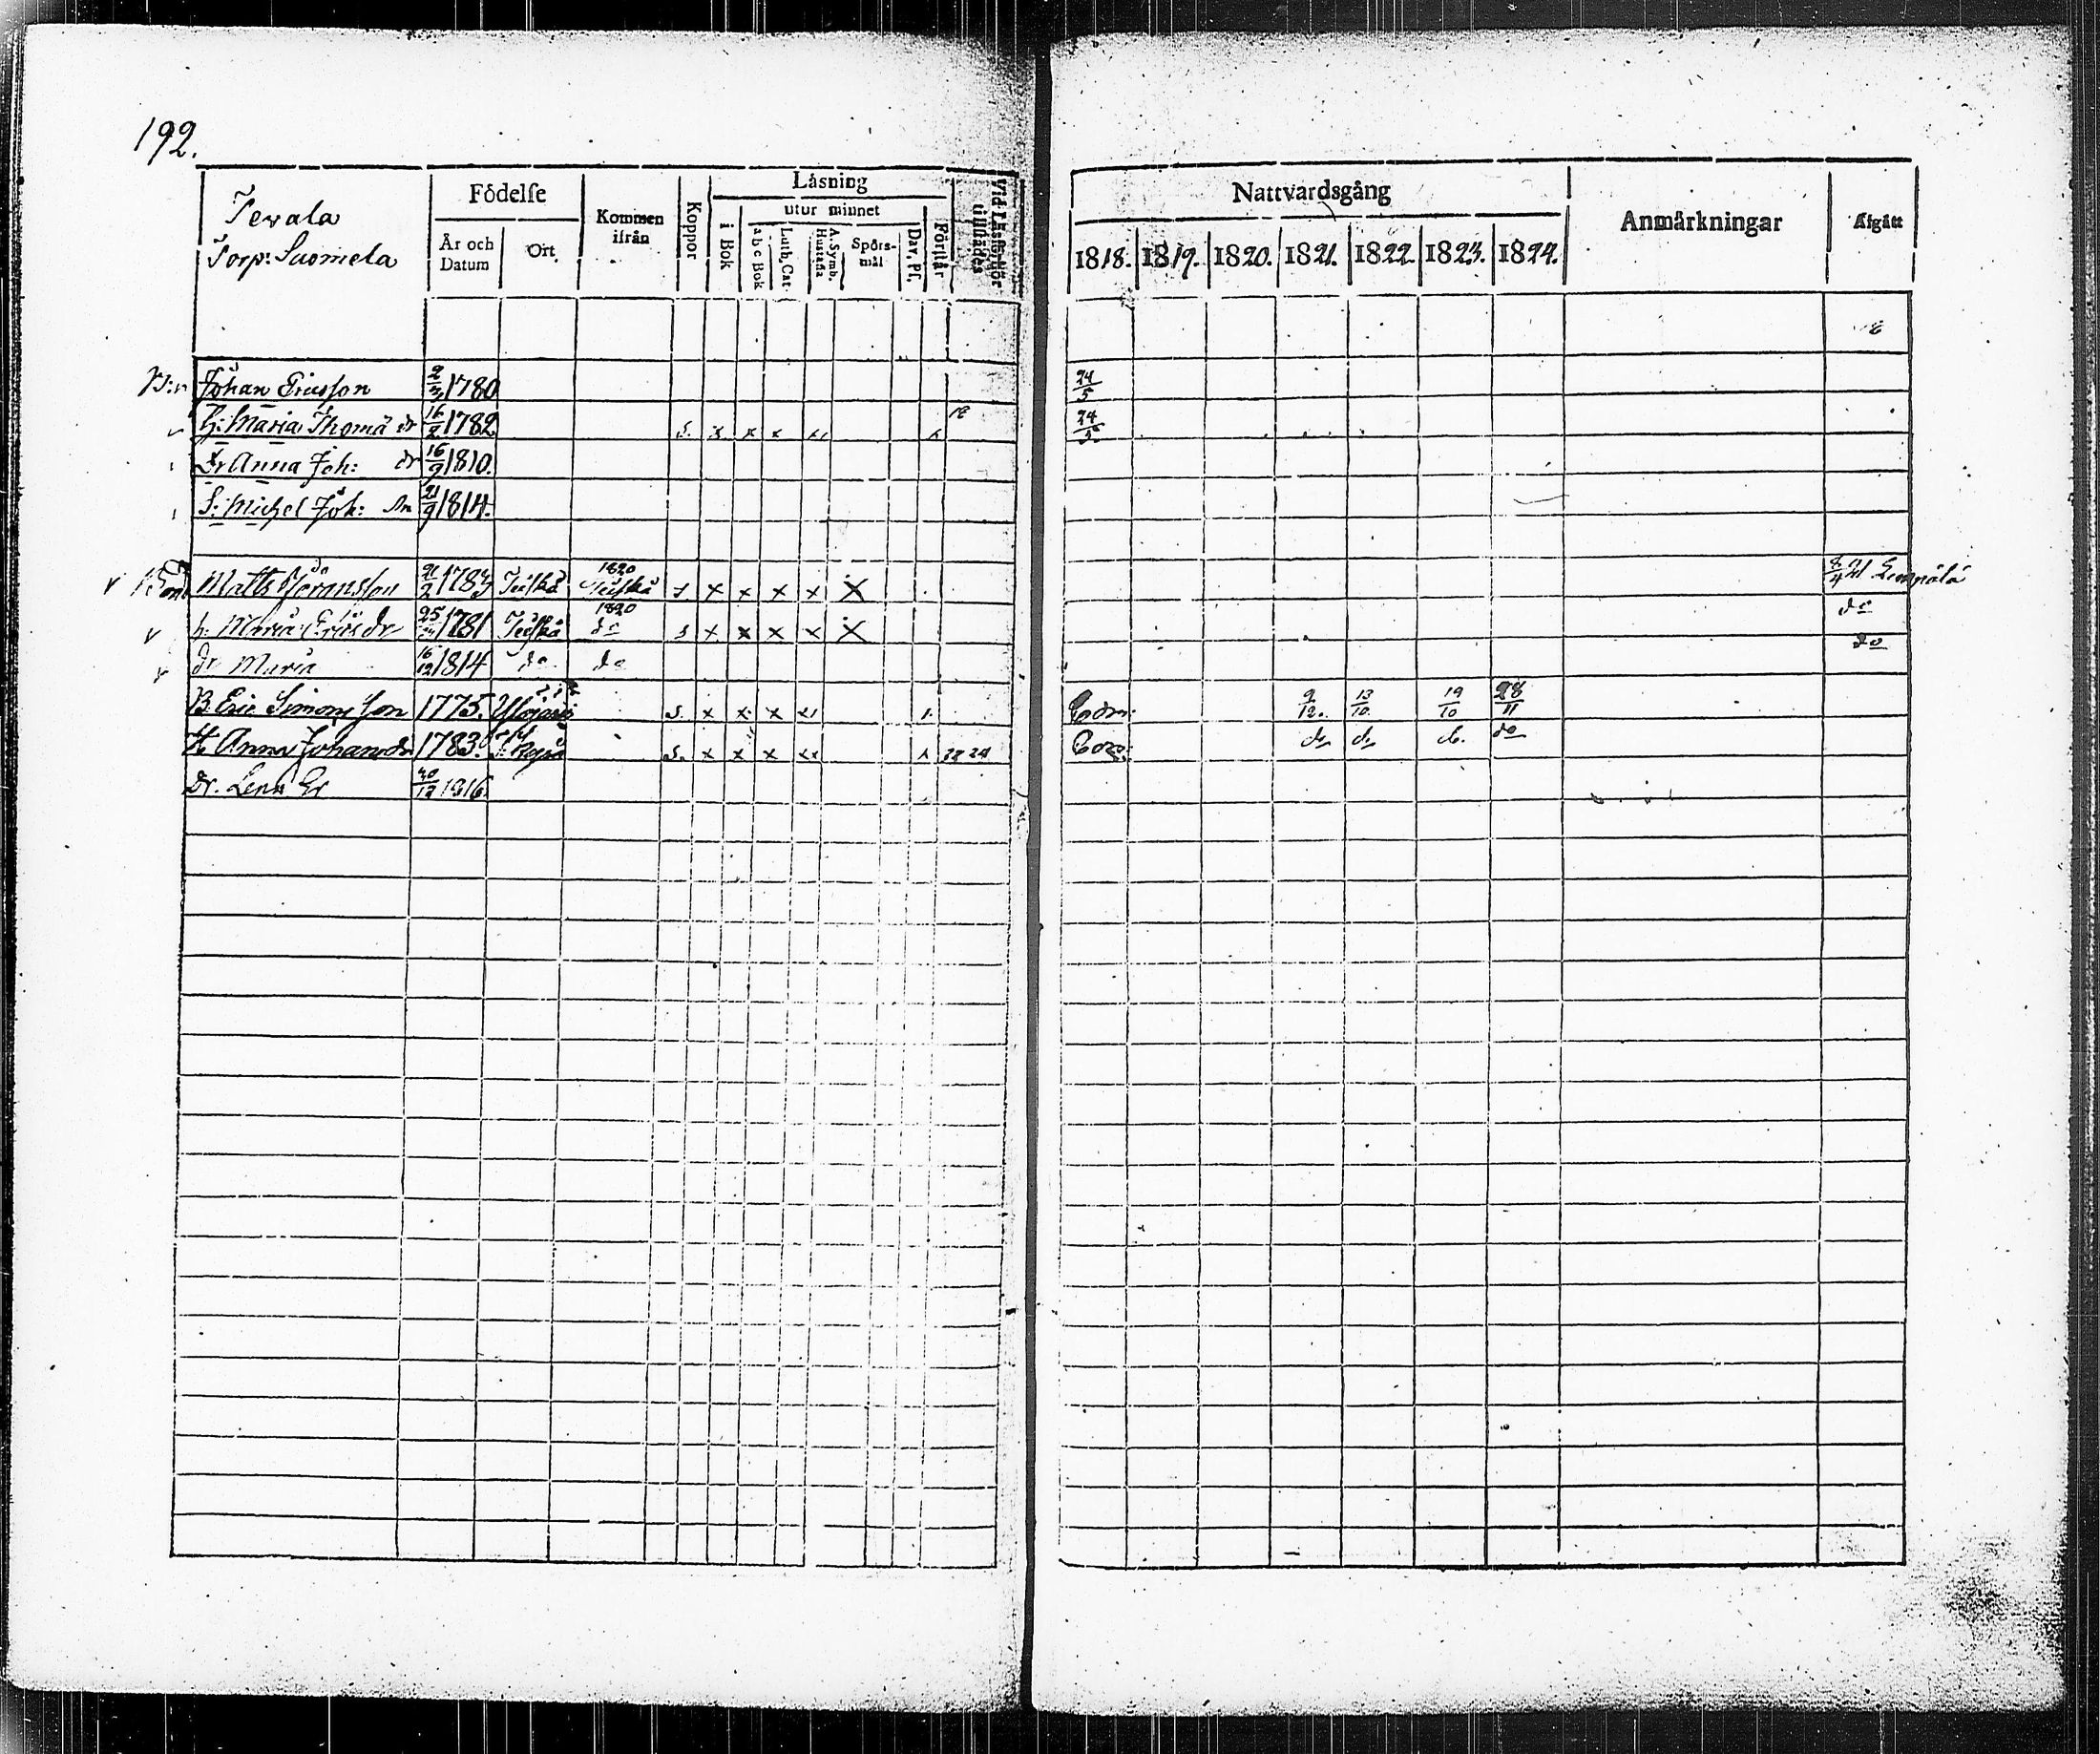 192.
Tevala
Torp: Suomela
Födelse
År och Datum
Ort
Kommen ifrån
Koppor
Läsning
i Bok
utur minnet
a b c Bok
Luth. Cat.
A. Symb. Hustafla
Spörs-mål
Dav. Ps.
Förstår
Vid Läsförhör tillstädes
Nattvardsgång
1818. 1819. 1820. 1821. 1822. 1823. 1824.
Anmärkningar
Afgått
Johan Ericsson 1780 24/5
H: Maria Thomä dr 16/2 1782 s. x x x x 24/5
Dr Anna Joh: dr 16/9 1810.
S: Michel Joh: sn 21/9 1814.
Bond Matts Göransson 21/2 1783 Teiskå 1820 Teiskå s x x x x X 8/4 21 Lempälä
h. Maria Erics dr 1781 Teiskå 1820 do s x x x x X do
dr Maria 16/12 1814 do do do
B. Eric Simonsson 1775. Ylöjärvi s. x x x x 9/12. 13/10. 19/10 28/11
H Anna Johansdr 1783. s. x x x x do do do do
Dr. Lena Er 1816.